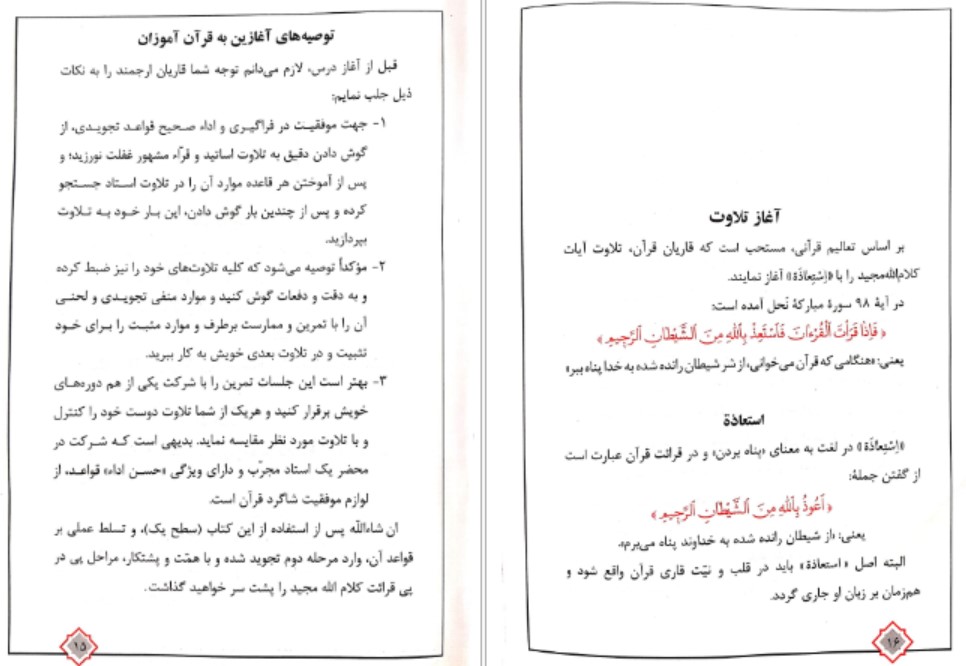 توصیه‌های آغازین به قرآن آموزان
قبل از آغاز درس، لازم می‌دانم توجه شما قاریان ارجمند را به نکات
ذیل جلب نمایم:
۱- جهت موفقیت در فراگیری و اداء صحیح قواعد تجویدی، از
گوش دادن دقیق به تلاوت اساتید و قرّاء مشهور غفلت نورزید؛ و
پس از آموختن هر قاعده موارد آن را در تلاوت استاد جستجو
کرده و پس از چندین بار گوش دادن، این بار خود به تلاوت
بپردازید.
۲- مؤکداً توصیه می‌شود که کلیه تلاوت‌های خود را نیز ضبط کرده
و به دقت و دفعات گوش کنید و موارد منفی تجویدی و لحنی
آن را با تمرین و ممارست برطرف و موارد مثبت را برای خود
تثبیت و در تلاوت بعدی خویش به کار ببرید.
۳- بهتر است این جلسات تمرین را با شرکت یکی از هم دوره‌های
خویش برقرار کنید و هریک از شما تلاوت دوست خود را کنترل
و با تلاوت مورد نظر مقایسه نماید. بدیهی است که شرکت در
محضر یک استاد مجرّب و دارای ویژگی «حسن اداء» قواعد، از
لوازم موفقیت شاگرد قرآن است.
ان شاءاللّه پس از استفاده از این کتاب (سطح یک)، و تسلط عملی بر
قواعد آن، وارد مرحله دوم تجوید شده و با همّت و پشتکار، مراحل پی در
پی قرائت کلام الله مجید را پشت سر خواهید گذاشت.
۱۵
آغاز تلاوت
بر اساس تعالیم قرآنی، مستحب است که قاریان قرآن، تلاوت آیات
کلام‌الله‌مجید را با «اِسْتِعاذَة» آغاز نمایند.
در آیهٔ ۹۸ سورهٔ مبارکهٔ نَحل آمده است:
﴿ فَإِذَا قَرَأْتَ ٱلْقُرْءَانَ فَٱسْتَعِذْ بِٱللَّهِ مِنَ ٱلشَّيْطَانِ ٱلرَّجِيمِ ﴾
یعنی: «هنگامی که قرآن می‌خوانی، از شر شیطان رانده شده به خدا پناه ببر»
استعاذة
«اِسْتِعاذَة» در لغت به معنای «پناه بردن» و در قرائت قرآن عبارت است
از گفتن جملهٔ:
﴿ أَعُوذُ بِٱللَّهِ مِنَ ٱلشَّيْطَانِ ٱلرَّجِيمِ ﴾
یعنی: «از شیطان رانده شده به خداوند پناه می‌برم».
البته اصل «استعاذة» باید در قلب و نیّت قاری قرآن واقع شود و
هم‌زمان بر زبان او جاری گردد.
۱۶